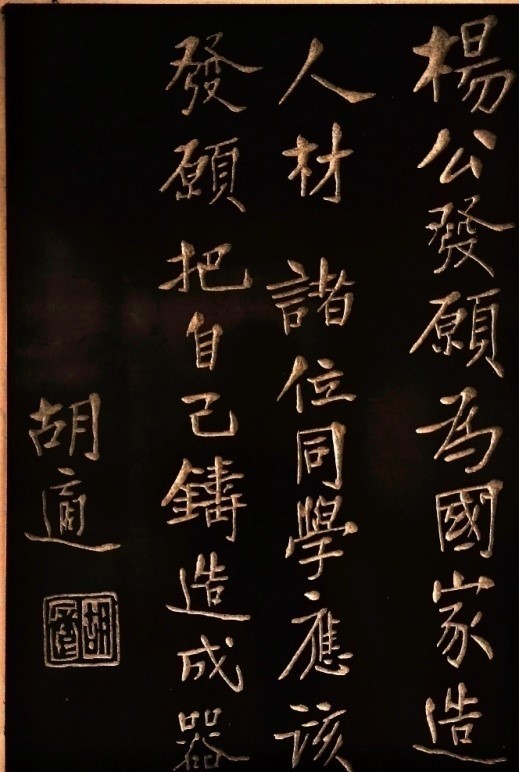 楊公發願為國家造
人材 諸位同學應該
發願把自己鑄造成器
胡適
胡適